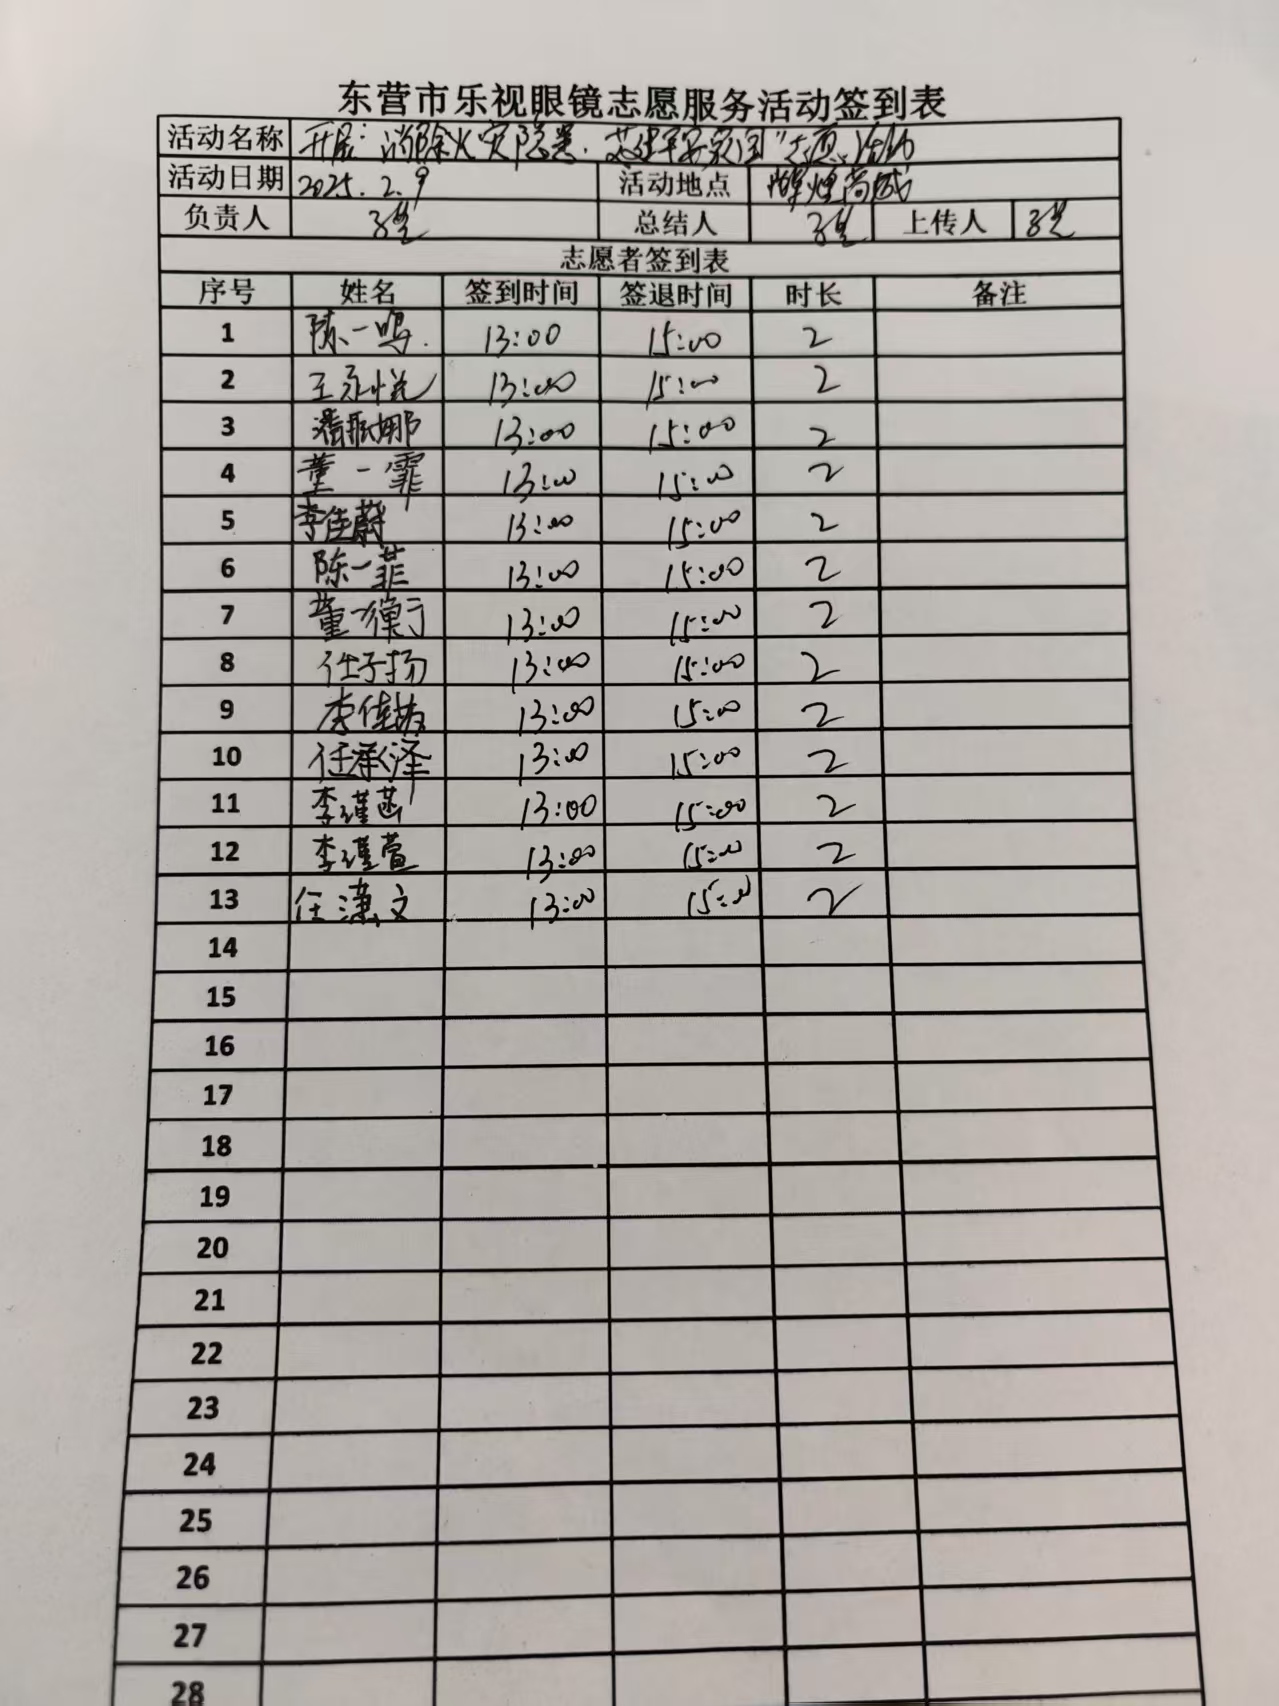 东营市乐视眼镜志愿服务活动签到表
活动名称 开展"消除火灾隐患. 共建平安家园"志愿活动
活动日期 2025.2.9 活动地点 辉煌商城
负责人 总结人 上传人
志愿者签到表
序号 姓名 签到时间 签退时间 时长 备注
1 陈一鸣. 13:00 15:00 2
2 王永悦 13:00 15:00 2
3 13:00 15:00 2
4 董一霏 13:00 15:00 2
5 李佳蔚 13:00 15:00 2
6 陈一菲 13:00 15:00 2
7 董一衡 13:00 15:00 2
8 任子扬 13:00 15:00 2
9 李佳 13:00 15:00 2
10 任承泽 13:00 15:00 2
11 李瑾菡 13:00 15:00 2
12 李瑾萱 13:00 15:00 2
13 任潇文 13:00 15:00 2
14
15
16
17
18
19
20
21
22
23
24
25
26
27
28